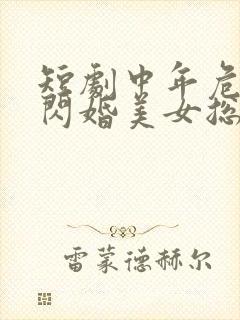 短劇中年危
閃婚美女总
雷蒙德赫尔